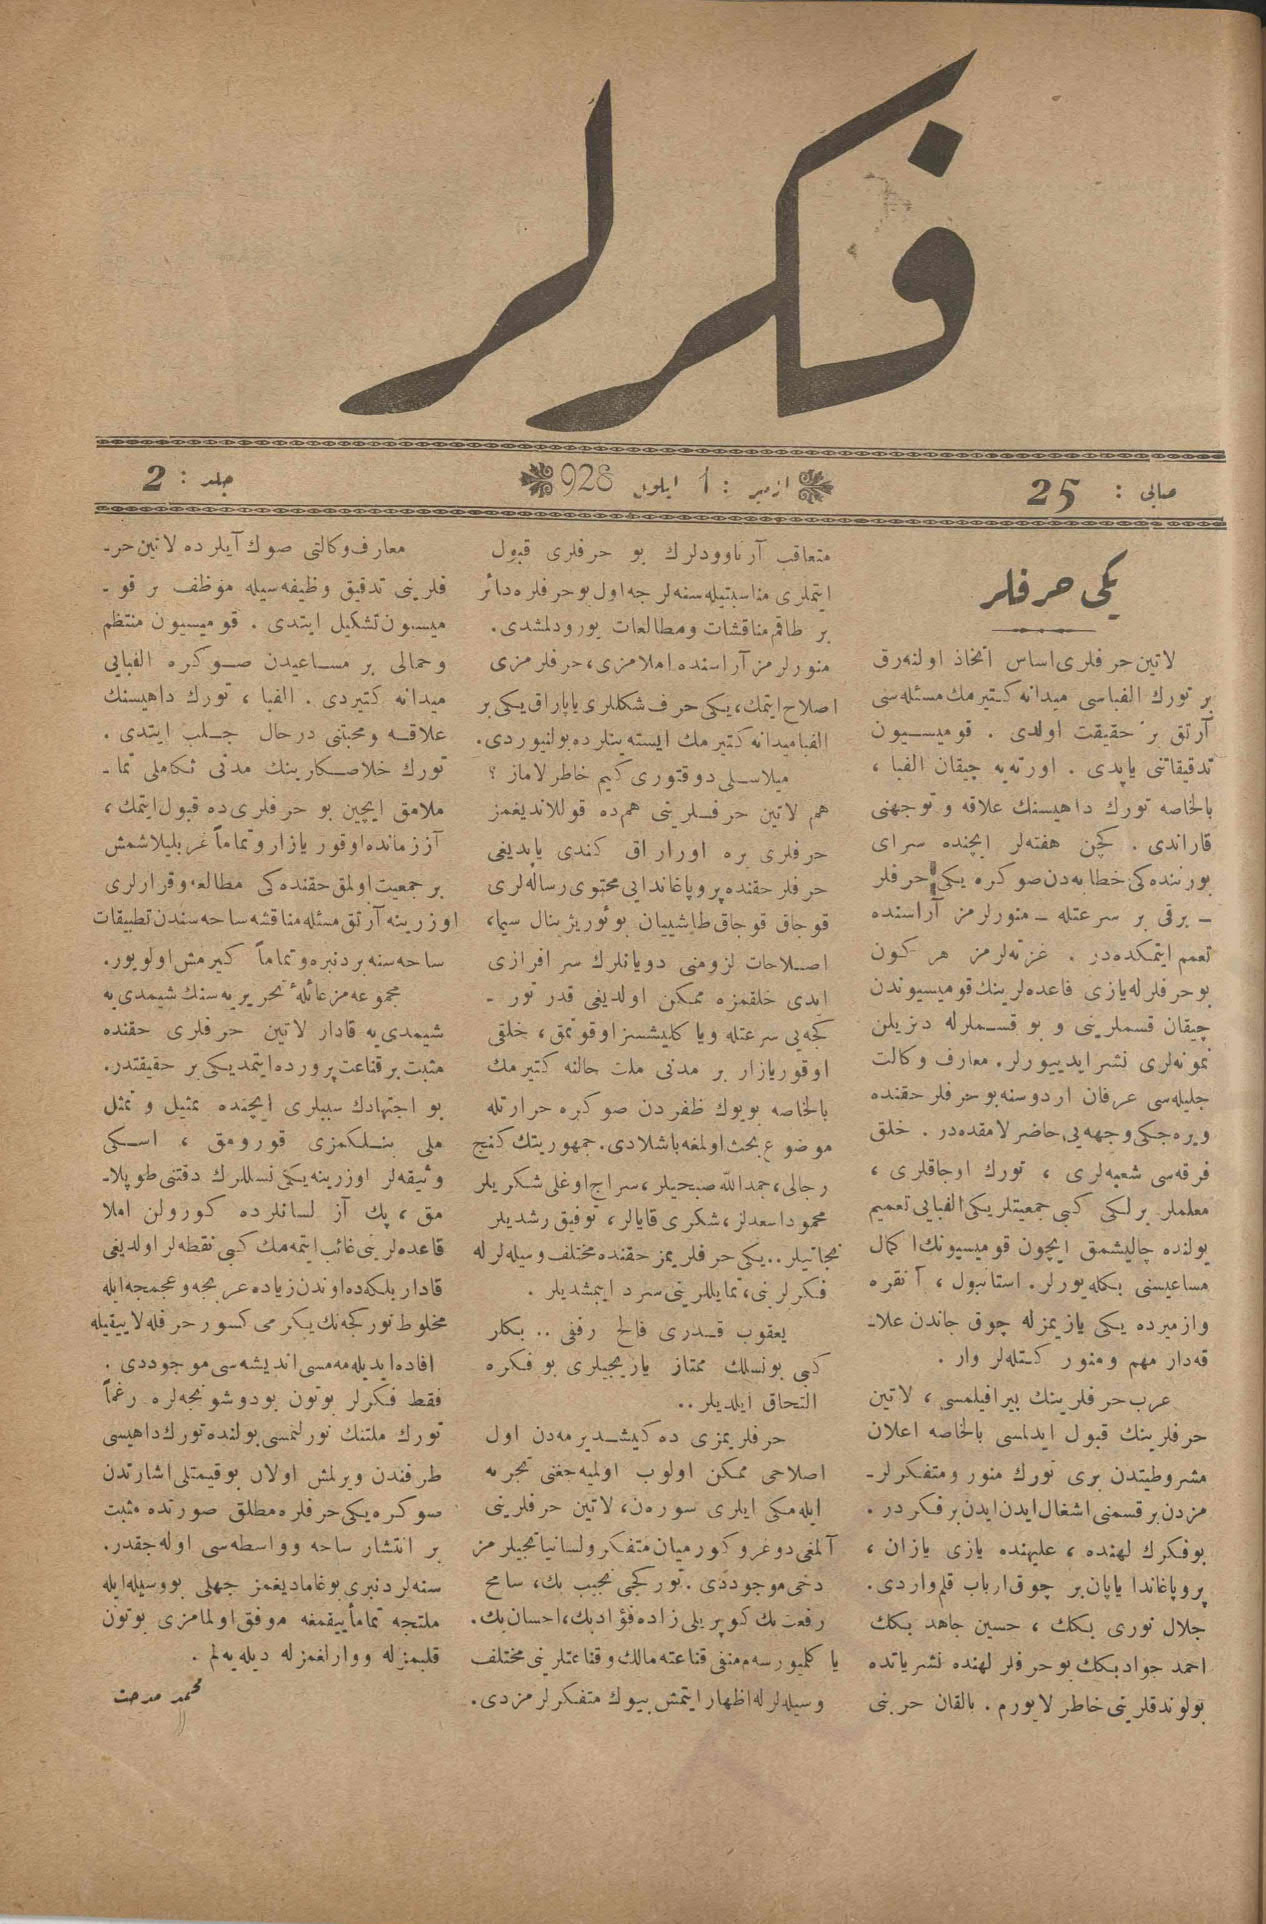 فكرلر
صايی : 25
ازمير : 1 ايلول 928
جلد : 2
يكی حرفلر
لاتين حرفلری اساس اتخاذ اولنه‌رق
بر تورك الفباسی ميدانه كـتيرمك مسئله‌سی
آرتق بر حقيقت اولدی . قوميسـيون
تدقيقاتنی ياپدی . اورته‌يه چيقان الفبا ،
بالخاصه تورك داهيسنك علاقه و توجهنی
قازاندی . كچن هفته‌لر ايچنده سرای
بورننده‌كی خطابه‌دن صوكره يكی حرفلر
ـ برقی بر سرعتله ـ منورلرمز آراسنده
تعمم ايتمكده‌در . غزته‌لرمز هر كون
بوحرفلرله يازی قاعده‌لرينك قوميسيوندن
چيقان قسملرينی و بو قسـملرله ديزيلن
نمونه‌لری نشرايدييورلر. معارف وكالت
جليله‌سی عرفان اردوسنه بوحرفلر حقنده
ويره‌جكی وجهه‌يی حاضرلامقده‌در . خلق
فرقه‌سی شعبه‌لری ، تورك اوجاقلری ،
معلملر برلكی كبی جمعيتلر يكی الفبايی تعميم
يولنده چاليشمق ايچون قوميسيونك اكمال
مساعيسنی بكله‌يورلر. استانبول ، آنقره
وازميرده يكی يازيمزله چوق جاندن علاـ
قه‌دار مهم و منور كـتله‌لر وار .
عرب حرفلرينك بيراقيلمسی ، لاتين
حرفلرينك قبول ايدلمسی بالخاصه اعلان
مشروطيتدن بری تورك منور ومتفكرلرـ
مزدن برقسمنی اشغال ايدن ايدن برفكر در .
بوفكرك لهنده ، عليهنده يازی يازان ،
پروپاغاندا ياپان بر چوق ارباب قلم واردی.
جلال نوری بكك ، حسين جاهد بكك
احمد جواد بكك بوحرفلر لهنده نشرياتده
بولوندقلرينی خاطرلايورم . بالقان حربنی
متعاقب آرناوودلرك بو حرفلری قبول
ايتملری مناسبتيله سنه‌لرجه اول بوحرفلره دائر
بر طاقم مناقشات ومطالعات يورودلمشدی.
منورلرمز آراسنده املامزی، حرفلرمزی
اصلاح ايتمك، يكی حرف شكللری ياپاراق يكی بر
الفبا ميدانه كتيرمك ايسته‌ينلرده بولنيوردی.
ميلاسـلی دوقتوری كيم خاطرلاماز ؟
هم لاتين حرفـلرينی هم‌ده قوللانديغمز
حرفلری يره اورارق كندی ياپديغی
حرفلر حقنده پروپاغاندايی محتوی رساله‌لری
قوجاق قوجاق طاشييان بو ئوريژينال سيما،
اصـلاحات لزومنی دويانلرك سرافرازی
ايدی خلقمزه ممكن اولديغی قدر تورـ
كجه‌يی سرعتله ويا كليشسز اوقوتمق، خلقی
اوقوريازار بر مدنی ملت حالنه كتيرمك
بالخاصه بويوك ظفردن صوكره حرارتله
موضوع بحث اولمغه باشلادی. جمهوريتك كنج
رجالی، حمدالله صبحيلر، سراج اوغلی شكريلر
محمود اسعدلر، شكری قايالر، توفيق رشديلر
نجاتيلر.. يكی حرفلريمز حقنده مختلف وسيله‌لرله
فكرلرنی، تمايللرينی سرد ايتمشديلر .
يعقوب قـدری فالح رفقی .. بكلر
كبی بونسلك ممتاز يازيجيلری بو فكره
التحاق ايلديلر..
حرفلريمزی ده‌كيشـديرمه‌دن اول
اصلاحی ممكن اولوب اولميه‌جغنی تجربه
ايله‌مكی ايلری سوره‌ن، لاتين حرفلرينی
آلمغی دوغرو كورميان متفكر ولسانياتجيلرمز
دخی موجوددی . توركجی نجيب بك، سامح
رفعت بك كوپريلی زاده فؤاد بك، احسان بك.
وسيله‌لرله اظهار ايتمش بيوك متفكرلرمزدی.
معارف وكالتی صوك آيلرده لاتين حرـ
فلرينی تدقيق وظيفه‌سيله موظف بر قو ـ
ميسـون تشكيل ايتدی . قوميسيون منتظم
وحمالی بر مسـاعيدن صـوكره الفبايی
ميدانه كتيردی . الفبا ، تورك داهيسنك
علاقـه ومحبتنی درحال جـلب ايتدی .
تورك خلاصـكارينك مدنی تكاملی تماـ
ملامق ايچين بو حرفلری ده قبول ايتمك،
آززمانده اوقور يازار وتماماً غربليلاشمش
بر جمعيت اولمق حقنده‌كی مطالعه وقرارلری
اوزرينه آرتق مسئله مناقشه ساحه‌سندن تطبيقات
ساحه‌سنه بردنبره وتماماً كيرمش اولويور.
مجموعه‌مز عائلهٔ تحريريه‌سنك شيمدی‌يه
شيمدی‌يه قادار لاتين حرفلری حقنده
مثبت برقناعت پرورده ايتمديكی بر حقيقتدر.
بو اجتهادك سببلری ايچنده تمثيل و تمثل
ملی بنـلكمزی قورومق ، اسـكی
وثيقه‌لر اوزرينه يكی نسللرك دقتنی طوپلاـ
مق ، پك آز لسانلرده كورولن املا
قاعده‌لرينی غائب ايتمه‌مك كبی نقطه‌لر اولديغی
قادار بلكه‌ده اوندن زياده عربجه وعجمجه ايله
مخلوط توركجه‌نك يكرمی كسور حرفله لاييقيله
افاده ايديله‌مه‌مسی انديشه‌سی موجوددی .
فقط فكرلر بوتون بودوشونجه‌لره رغماً
تورك ملتنك نورلنمسی يولنده تورك داهيسی
طرفندن ويرلمش اولان بوقيمتلی اشارتدن
صوكره يكی حرفلره مطلق صورتده مثبت
بر انتشار ساحه وواسطه‌سی اوله‌جقدر.
سنه‌لردنبری بوغاماديغمز جهلی بووسيله ايله
ملتجه تماماً ييقمغه موفق اولمامزی بوتون
قلبمزله ووارلغمزله ديله‌يه‌لم .
محمد مدحت